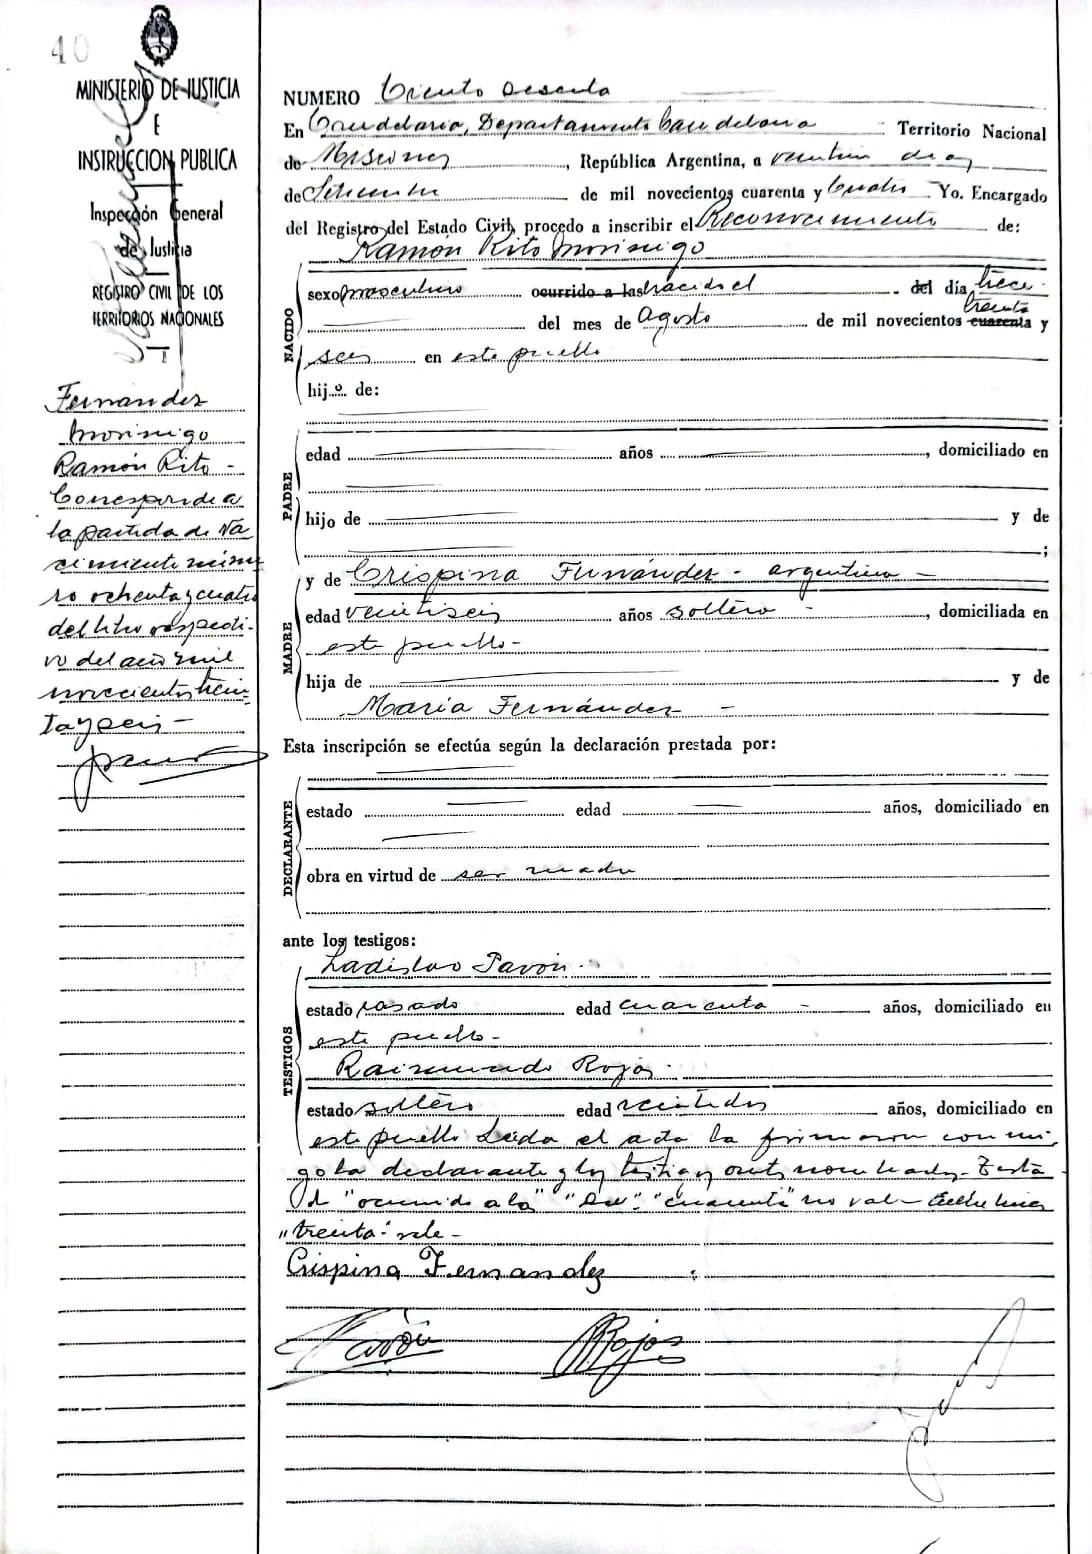 40
MINISTERIO DE JUSTICIA
E
INSTRUCCION PUBLICA
Inspección General
de Justicia
REGISTRO CIVIL DE LOS
TERRITORIOS NACIONALES
Fernández
Morinigo
Ramón Rito -
Corresponde a
la partida de Na
cimiento núme
ro ochenta y cuatro
del libro respecti-
vo del año mil
novecientos trein
ta y seis -
NUMERO Ciento sesenta
En Candelaria, Departamento Candelaria Territorio Nacional
de Misiones, República Argentina, a
de Setiembre de mil novecientos cuarenta y Cuatro Yo. Encargado
del Registro del Estado Civil, procedo a inscribir el Reconocimiento de:
Ramón Rito Morinigo
NACIDO
sexo masculino ocurrido a las nacido el del día trece
treinta
del mes de Agosto de mil novecientos cuarenta y
seis en este pueblo
hijo de:
PADRE
edad años , domiciliado en
hijo de y de
;
MADRE
y de Crispina Fernández - argentina -
edad veintiseis años soltera - , domiciliada en
este pueblo -
hija de y de
María Fernández -
Esta inscripción se efectúa según la declaración prestada por:
DECLARANTE
estado edad años, domiciliado en
obra en virtud de ser madre
ante los testigos:
TESTIGOS
Ladislao Pavón
estado casado edad cuarenta - años, domiciliado en
este pueblo -
Raimundo Rojas
estado soltero edad veintidos años, domiciliado en
este pueblo Leída el acta la firmaron conmi
go la declarante y los testigos nombrados - Testa
do "ocurrido a la" "cuarenta" no vale
"treinta" vale -
Crispina Fernandez
Pavón
Rojas